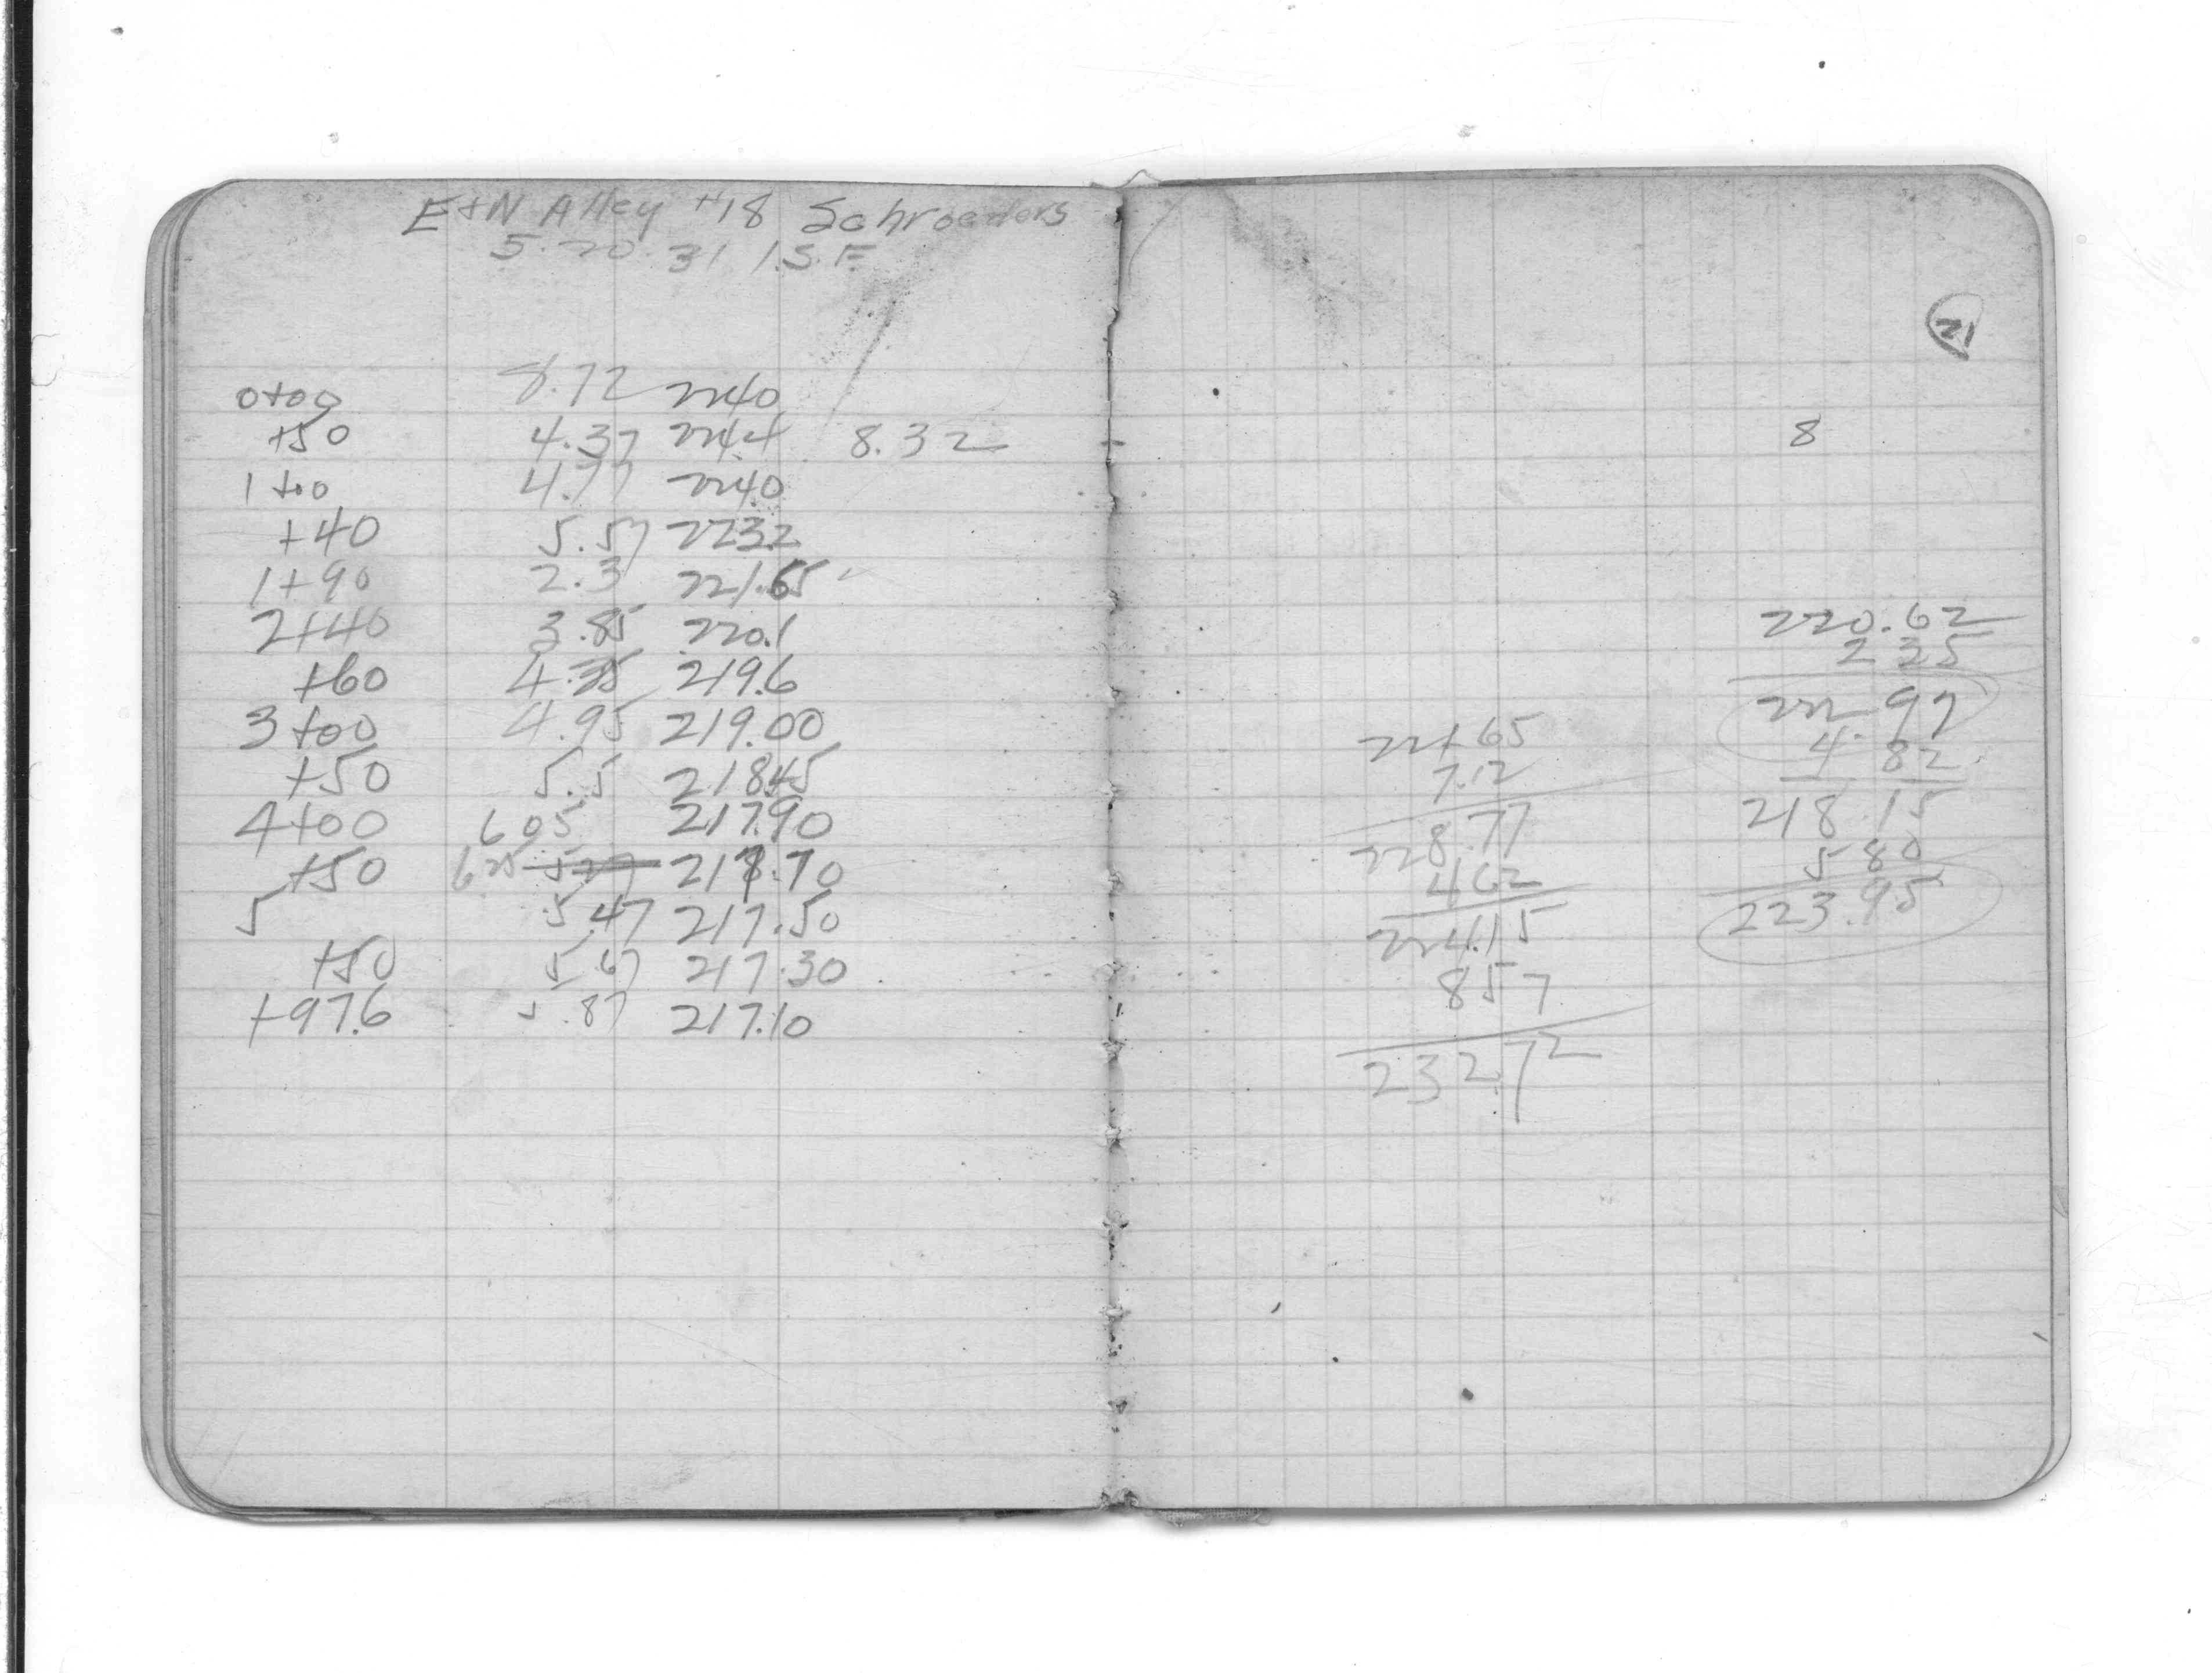 E+N Alley #18 Schroeders
5.20.31 I.S.F.
0+00 8.72 224.0
+50 4.37 224.4 8.32
1+00 4.77 224.0
+40 5.57 223.2
1+90 2.3 221.65
2+40 3.85 220.1
+60 4.35 219.6
3+00 4.95 219.00
+50 5.5 218.45
4+00 6.05 217.90
+50 6.25 5.27 217.70
5 5.47 217.50
+50 5.67 217.30
+97.6 5.87 217.10
21
8
221.65
7.12
228.77
4.62
224.15
8.57
232.72
220.62
2.35
222.97
4.82
218.15
5.80
223.95